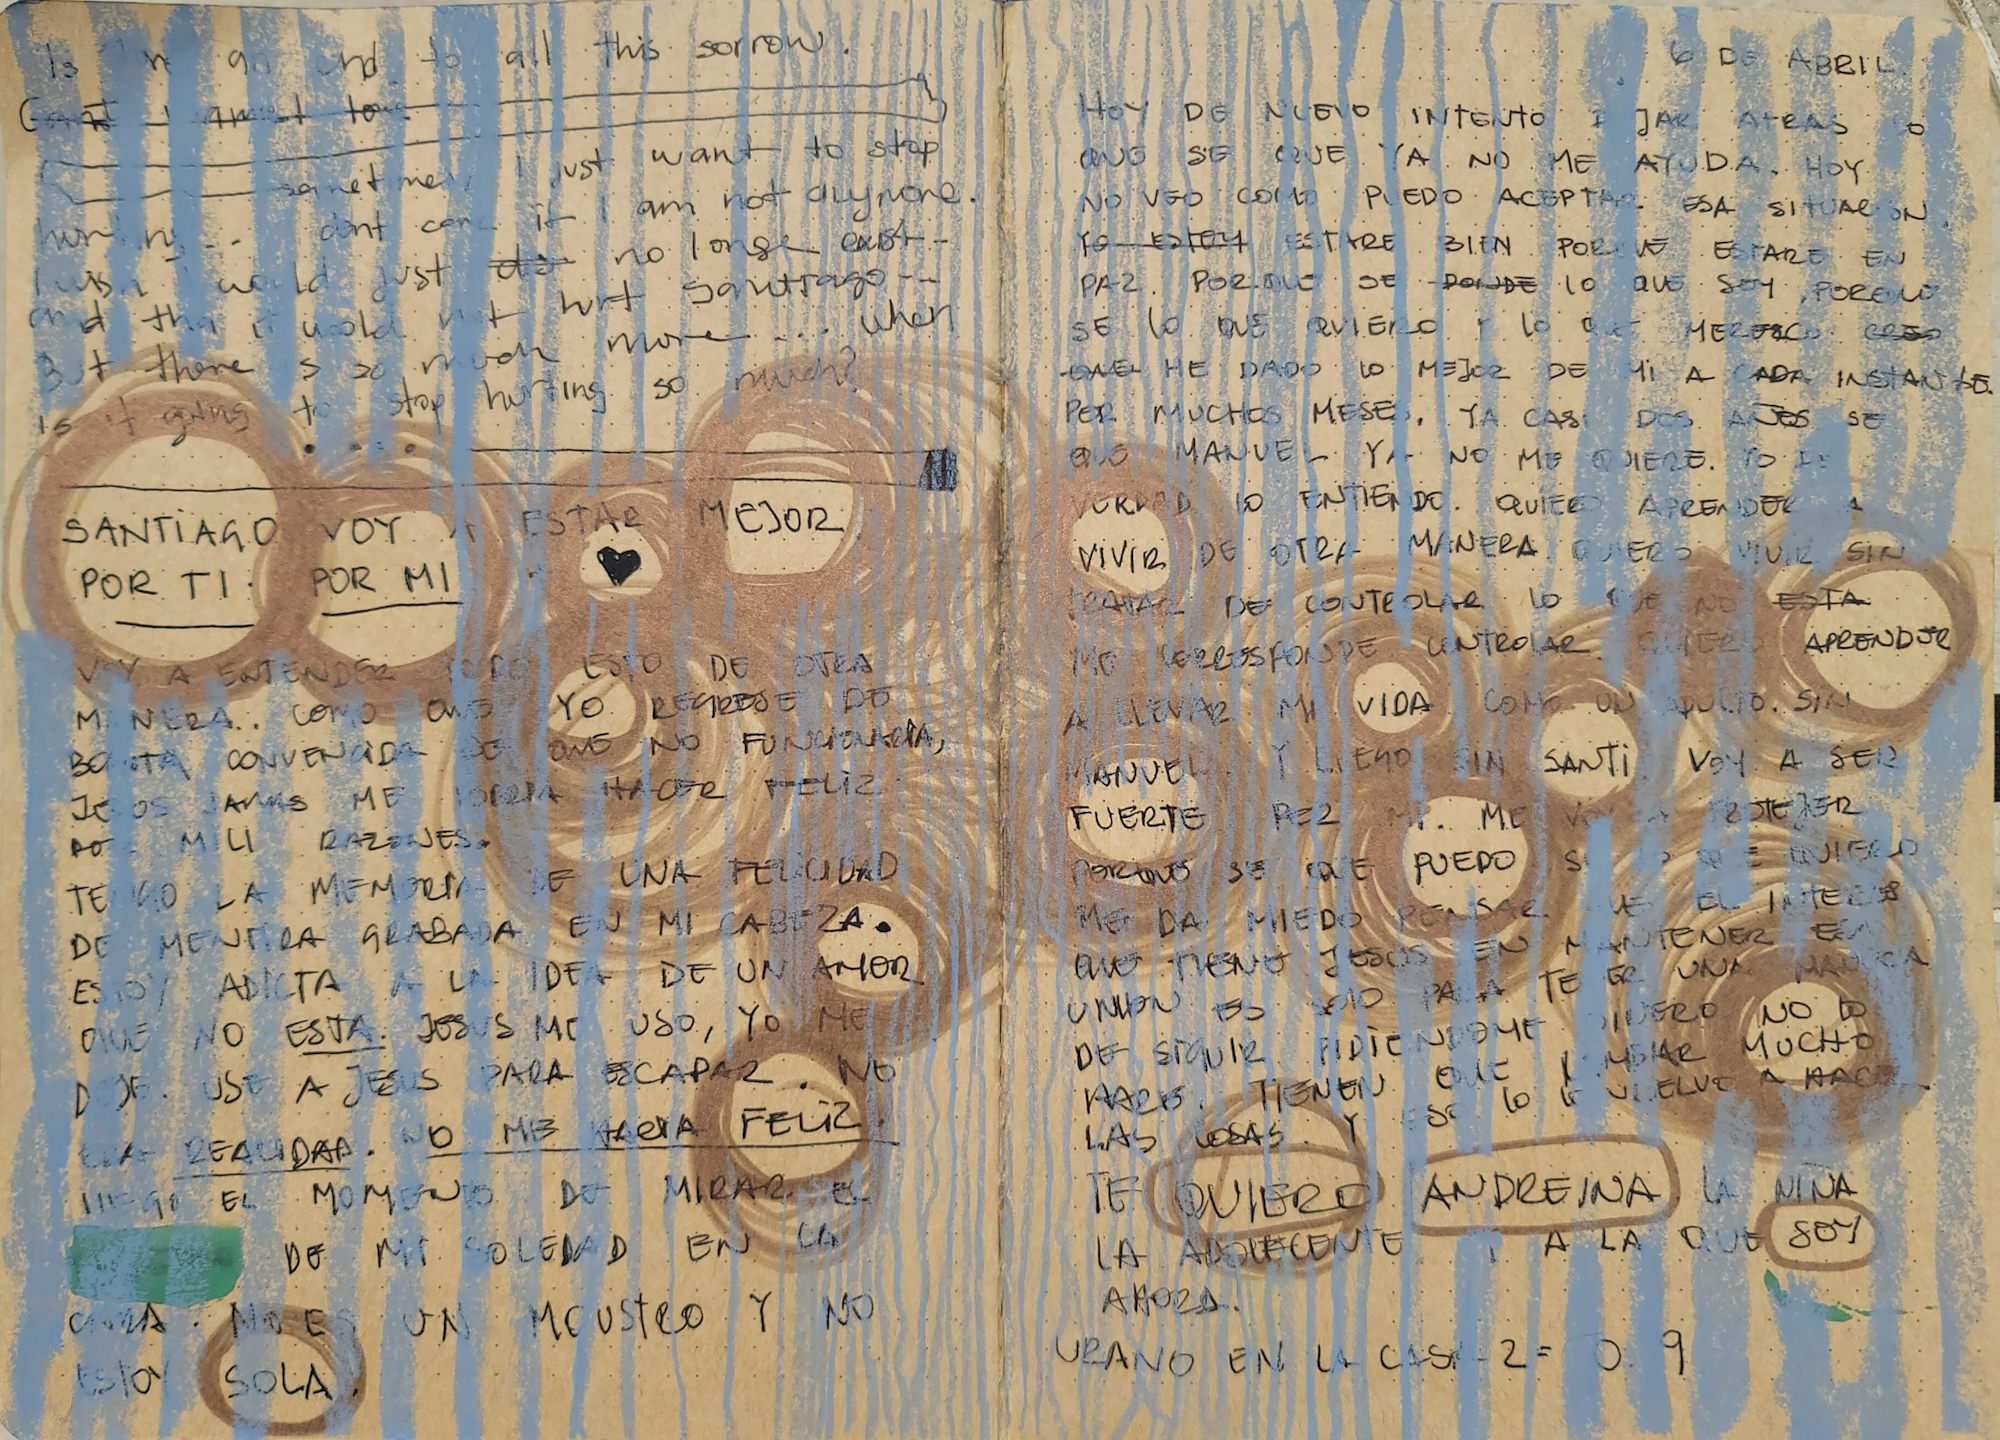 Is an end to all this sorrow.
sometimes I just want to stop
hurting... dont care if I am not anymore.
I wish I would just no longe exist--
and tha it would not hurt Santiago---
But there is so much more.... when
is it going to stop hurting so much?
....
SANTIAGO VOY A ESTAR MEJOR
POR TI. POR MI ♥
VOY A ENTENDER TODO ESTO DE OTRA
MANERA.. COMO QUE YO REGRESE DE
BOGOTA CONVENCIDA DE QUE NO FUNCIONARIA,
JESUS JAMAS ME PODRIA HACER FELIZ
POR MILI RAZONES.
TENGO LA MEMORIA DE UNA FELICIDAD
DE MENTIRA GRABADA EN MI CABEZA.
ESTOY ADICTA A LA IDEA DE UN AMOR
QUE NO ESTA. JESUS ME USO, YO ME
DEJE. USE A JESUS PARA ESCAPAR. NO
ERA REALIDAD. NO ME HARIA FELIZ.
LLEGO EL MOMENTO DE MIRAR EL
DE MI SOLEDAD EN LA
CARA. NO ES UN MOUSTRO Y NO
ESTOY SOLA.
6 DE ABRIL.
HOY DE NUEVO INTENTO DEJAR ATRAS LO
QUE SE QUE YA NO ME AYUDA. HOY
NO VEO COMO PUEDO ACEPTAR ESA SITUACION.
YO ESTARE BIEN PORQUE ESTARE EN
PAZ. PORQUE SE LO QUE SOY, PORQUE
SE LO QUE QUIERO Y LO QUE MERESCO
HE DADO LO MEJOR DE MI A CADA INSTANTE.
POR MUCHOS MESES. YA CASI DOS AÑOS SE
QUE MANUEL YA NO ME QUIERE. YO DE
VERDAD LO ENTIENDO. QUIERO APRENDER A
VIVIR DE OTRA MANERA. QUIERO VIVIR SIN
TRATAR DE CONTROLAR LO QUE NO ESTA
ME CORRESPONDE CONTROLAR. QUIERO APRENDER
A LLEVAR MI VIDA COMO UN ADULTO. SIN
MANUEL. Y LUEGO SIN SANTI. VOY A SER
FUERTE POR MI. ME VOY A PROTEJER
PORQUE SE QUE PUEDO QUE QUIERO
ME DA MIEDO PENSAR QUE EL INTERES
QUE TIENE JESUS EN MANTENER ESA
UNION ES SOLO PARA TENER UNA MANERA
DE SIGUIR PIDIENDOME DINERO NO LO
HARE. TIENEN QUE CAMBIAR MUCHO
LAS COSAS. Y ESO LO VUELVE A HACER
TE QUIERO ANDREINA. LA NINA
LA ADOLECENTE Y A LA QUE SOY
AHORA.
URANO EN LA CASA 2 = 0.9